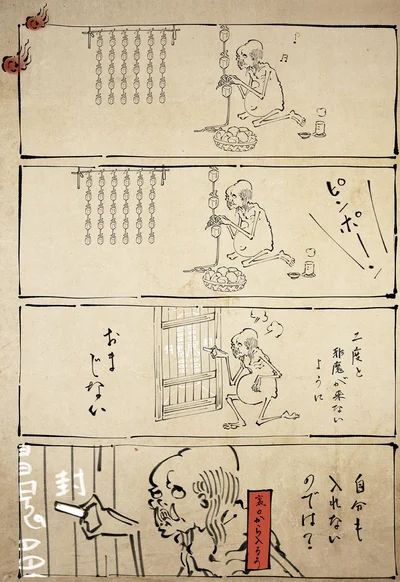 ピンポーン
二度と
邪魔が来ない
ように
おま
じない
自分も
入れない
のでは?
裏口から入ろう
封